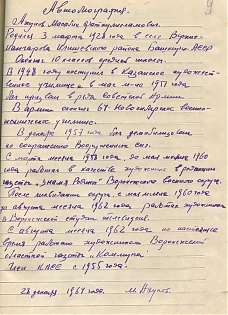 Автобиография.
Ахунов Масабих Фатхутисламович.
Родился 3 марта 1928 года в селе Верхне-
района Башкир. АССР
Окончил 10 классов средней школы.
В 1948 году поступил в Казанское художест-
венное училище, в мае м-це 1951 года
был призван в ряды советской Армии.
В армии окончил 6Т Новосибирское военно-
техническое училище.
В декабре 1957 года был демобилизован
по сокращению Вооруженных сил.
С марта месяца 1958 года, по май месяц 1960
года работал в качестве художника в редакции
газеты Воронежского военного округа.
После с мая месяца 1960 года
до августа месяца 1962 года работал художником
в Воронежской студии телевидения.
С августа месяца 1962 года по настоящее
время работаю художником Воронежской
областной газеты "Коммуна"
Член КПСС с 1955 года.
28 декабря 1964 года. М. Ахунов